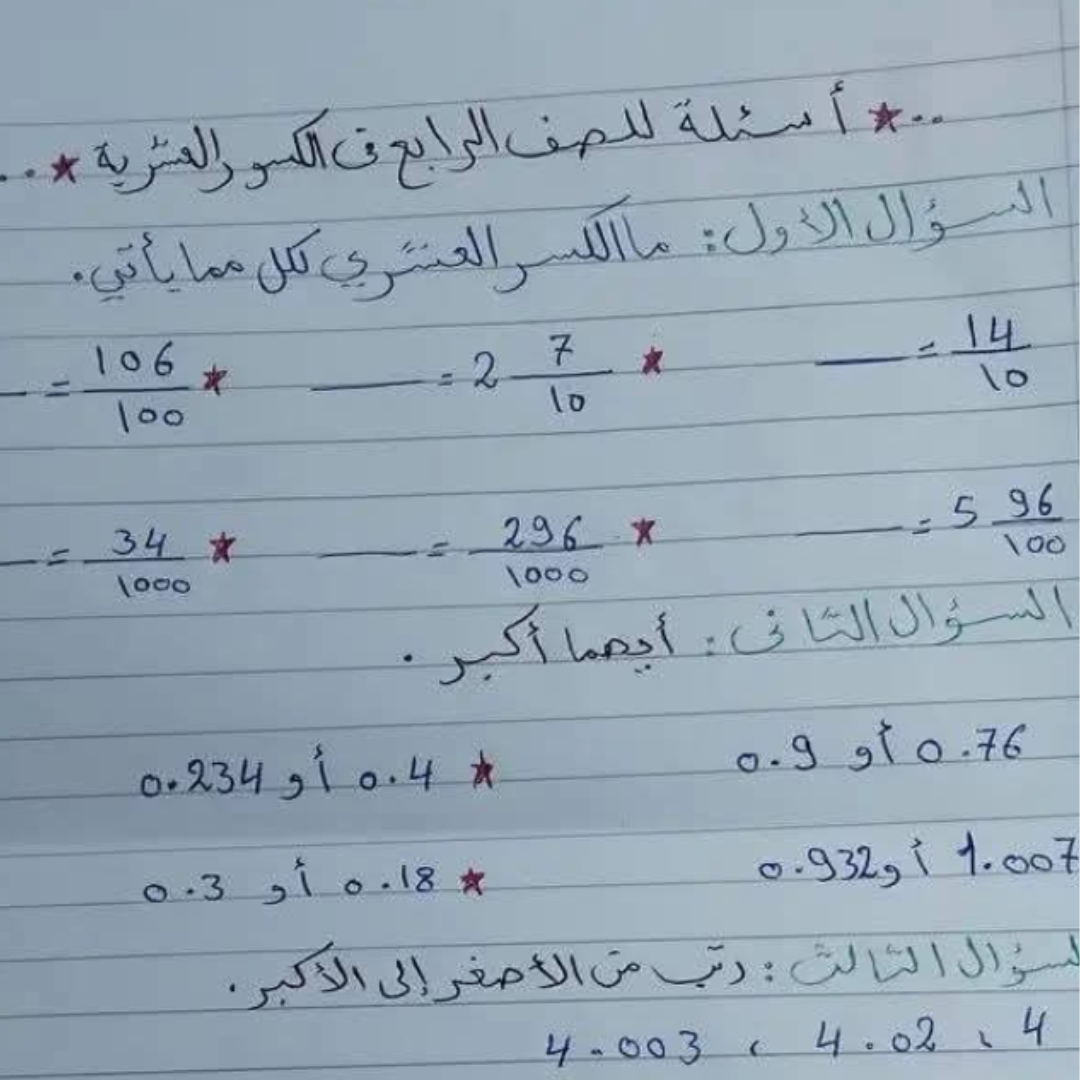 ..★ أسئلة للصف الرابع في الكسور العشرية ★..
السؤال الأول: ما الكسر العشري لكل مما يأتي.
14/10 = ___ ★ 2 7/10 = ___ ★ 106/100 = __
5 96/100 = ___ ★ 296/1000 = ___ ★ 34/1000 = __
السؤال الثاني: أيهما أكبر.
0.76 أو 0.9 ★ 0.4 أو 0.234
1.007 أو 0.932 ★ 0.18 أو 0.3
لسؤال الثالث: رتب من الأصغر إلى الأكبر.
4 ، 4.02 ، 4.003